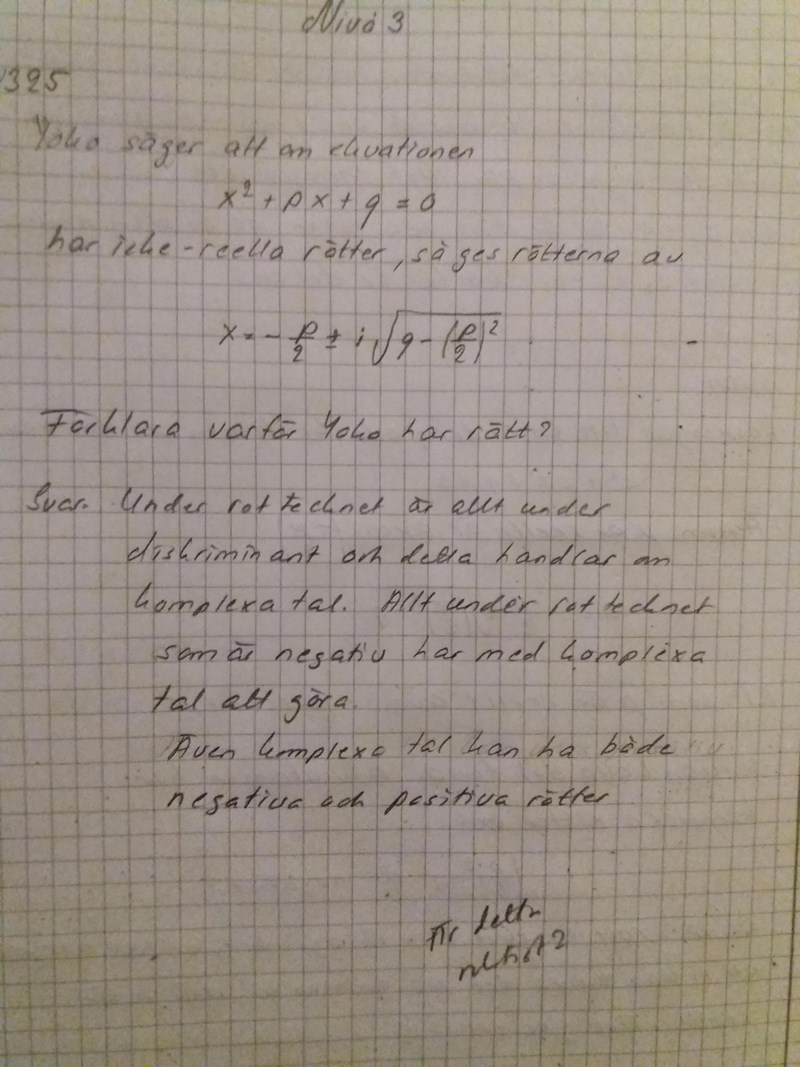 Nivå 3
1325
Yoko säger att om ekvationen
x² + px + q = 0
har icke-reella rötter, så ges rötterna av
x = - p/2 ± i √(q - (p/2)²)
Förklara varför Yoko har rätt?
Svar. Under rottecknet är allt under
diskriminant och detta handlar om
komplexa tal. Allt under rottecknet
som är negativ har med komplexa
tal att göra.
Även komplexa tal kan ha både
negativa och positiva rötter
Är detta